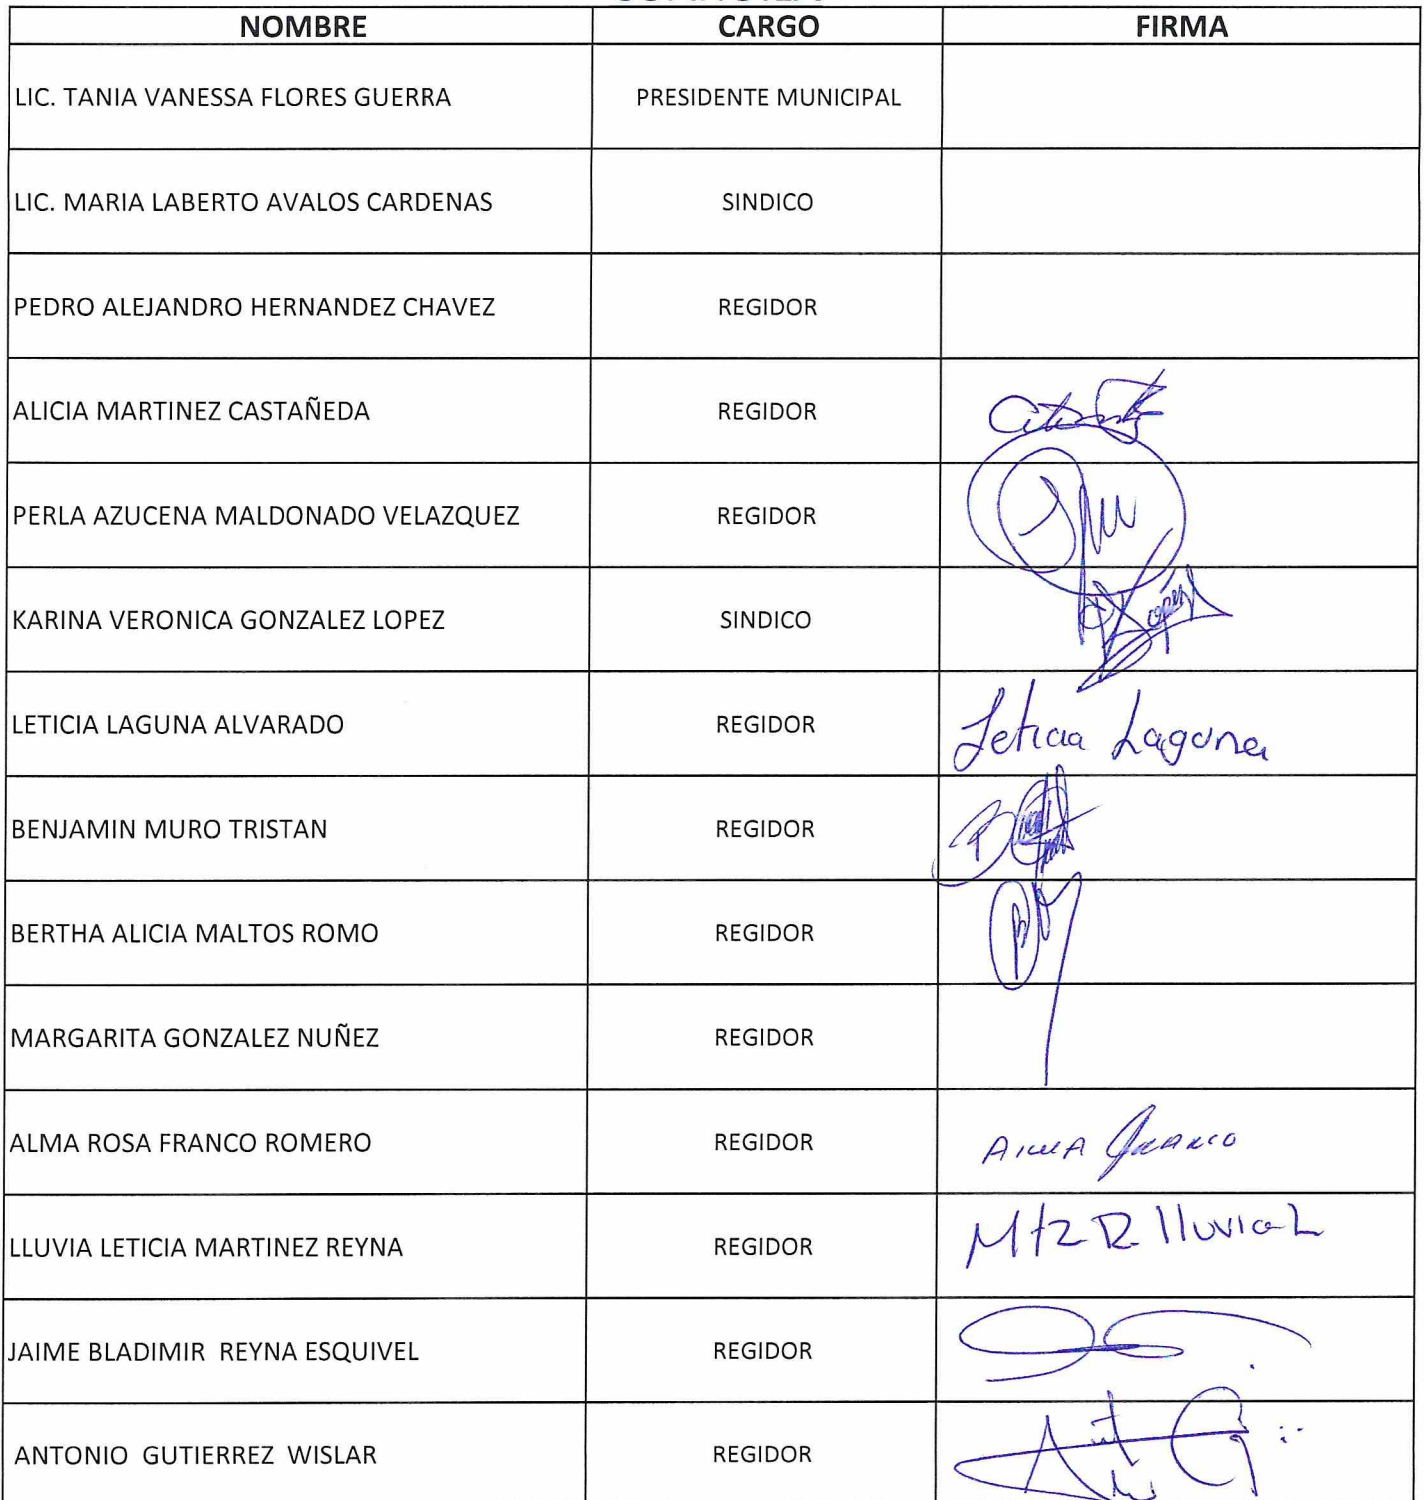 NOMBRE CARGO FIRMA
LIC. TANIA VANESSA FLORES GUERRA PRESIDENTE MUNICIPAL
LIC. MARIA LABERTO AVALOS CARDENAS SINDICO
PEDRO ALEJANDRO HERNANDEZ CHAVEZ REGIDOR
ALICIA MARTINEZ CASTAÑEDA REGIDOR
PERLA AZUCENA MALDONADO VELAZQUEZ REGIDOR
KARINA VERONICA GONZALEZ LOPEZ SINDICO
LETICIA LAGUNA ALVARADO REGIDOR Leticia Laguna
BENJAMIN MURO TRISTAN REGIDOR
BERTHA ALICIA MALTOS ROMO REGIDOR
MARGARITA GONZALEZ NUÑEZ REGIDOR
ALMA ROSA FRANCO ROMERO REGIDOR Alma Franco
LLUVIA LETICIA MARTINEZ REYNA REGIDOR Mtz R lluvia L
JAIME BLADIMIR REYNA ESQUIVEL REGIDOR
ANTONIO GUTIERREZ WISLAR REGIDOR